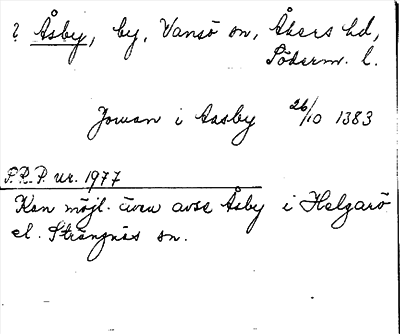 ? Åsby, by, Vansö sn, Åkers hd,
Söderm. l.
Jowan i Aasby 26/10 1383
P.R.P. nr. 1977
Kan möjl. även avse Åsby i Helgarö
el. Strängnäs sn.